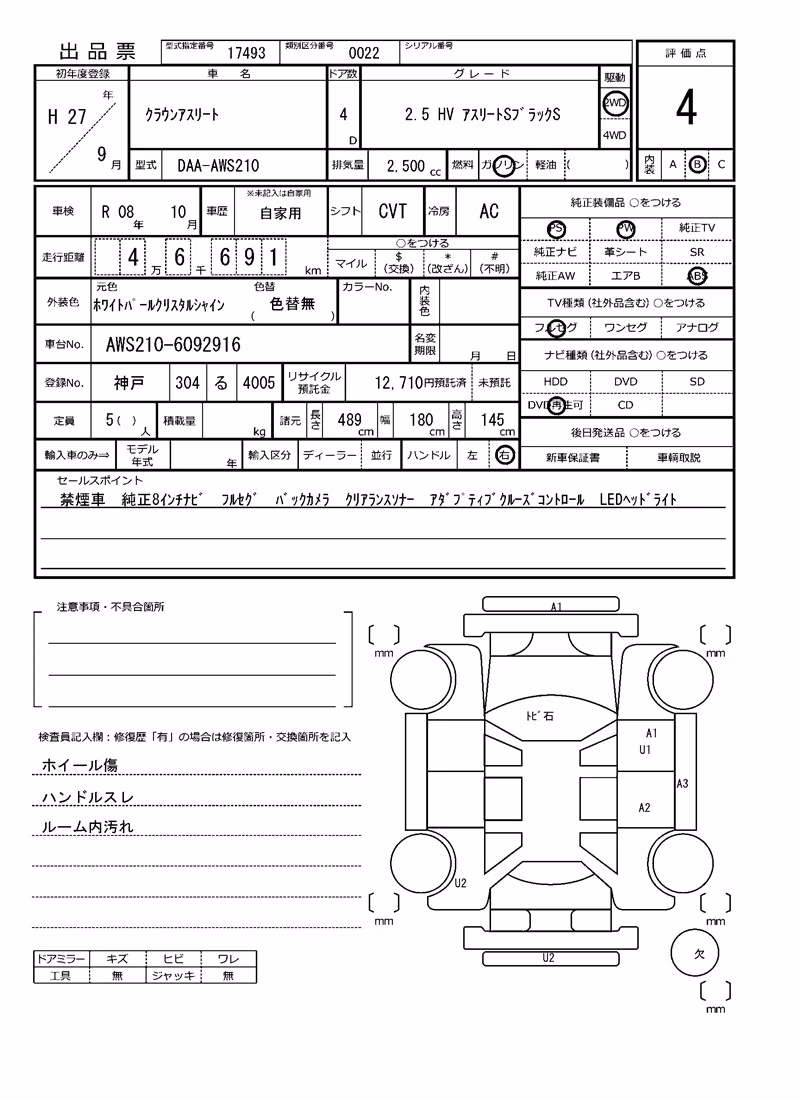 出品票 型式指定番号 17493 類別区分番号 0022 シリアル番号
評価点
初年度登録 車名 ドア数 グレード 駆動
H 27 年 クラウンアスリート 4 D 2.5 HV アスリートSブラックS 2WD 4
9 月 4WD
型式 DAA-AWS210 排気量 2,500 cc 燃料 ガソリン 軽油 ( ) 内装 A B C
車検 R 08 年 10 月 車歴 ※未記入は自家用 自家用 シフト CVT 冷房 AC
純正装備品 ○をつける
PS PW 純正TV
走行距離 4 万 6 千 6 9 1 km ○をつける
マイル $(交換) *(改ざん) #(不明)
純正ナビ 革シート SR
純正AW エアB ABS
外装色 元色 ホワイトパールクリスタルシャイン 色替 ( 色替無 ) カラーNo. 内装色
TV種類(社外品含む)○をつける
フルセグ ワンセグ アナログ
車台No. AWS210-6092916 名変期限 月 日
ナビ種類(社外品含む)○をつける
登録No. 神戸 304 る 4005 リサイクル預託金 12,710円預託済 未預託
HDD DVD SD
DVD再生可 CD
定員 5( ) 人 積載量 kg 諸元 長さ 489 cm 幅 180 cm 高さ 145 cm
後日発送品 ○をつける
輸入車のみ⇒ モデル年式 年 輸入区分 ディーラー 並行 ハンドル 左 右
新車保証書 車輌取説
セールスポイント
禁煙車 純正8インチナビ フルセグ バックカメラ クリアランスソナー アダプティブクルーズコントロール LEDヘッドライト
注意事項・不具合箇所
検査員記入欄:修復歴「有」の場合は修復箇所・交換箇所を記入
ホイール傷
ハンドルスレ
ルーム内汚れ
ドアミラー キズ ヒビ ワレ
工具 無 ジャッキ 無
A1
mm
mm
トビ石
A1
U1
A3
A2
U2
mm
mm
U2
欠
mm